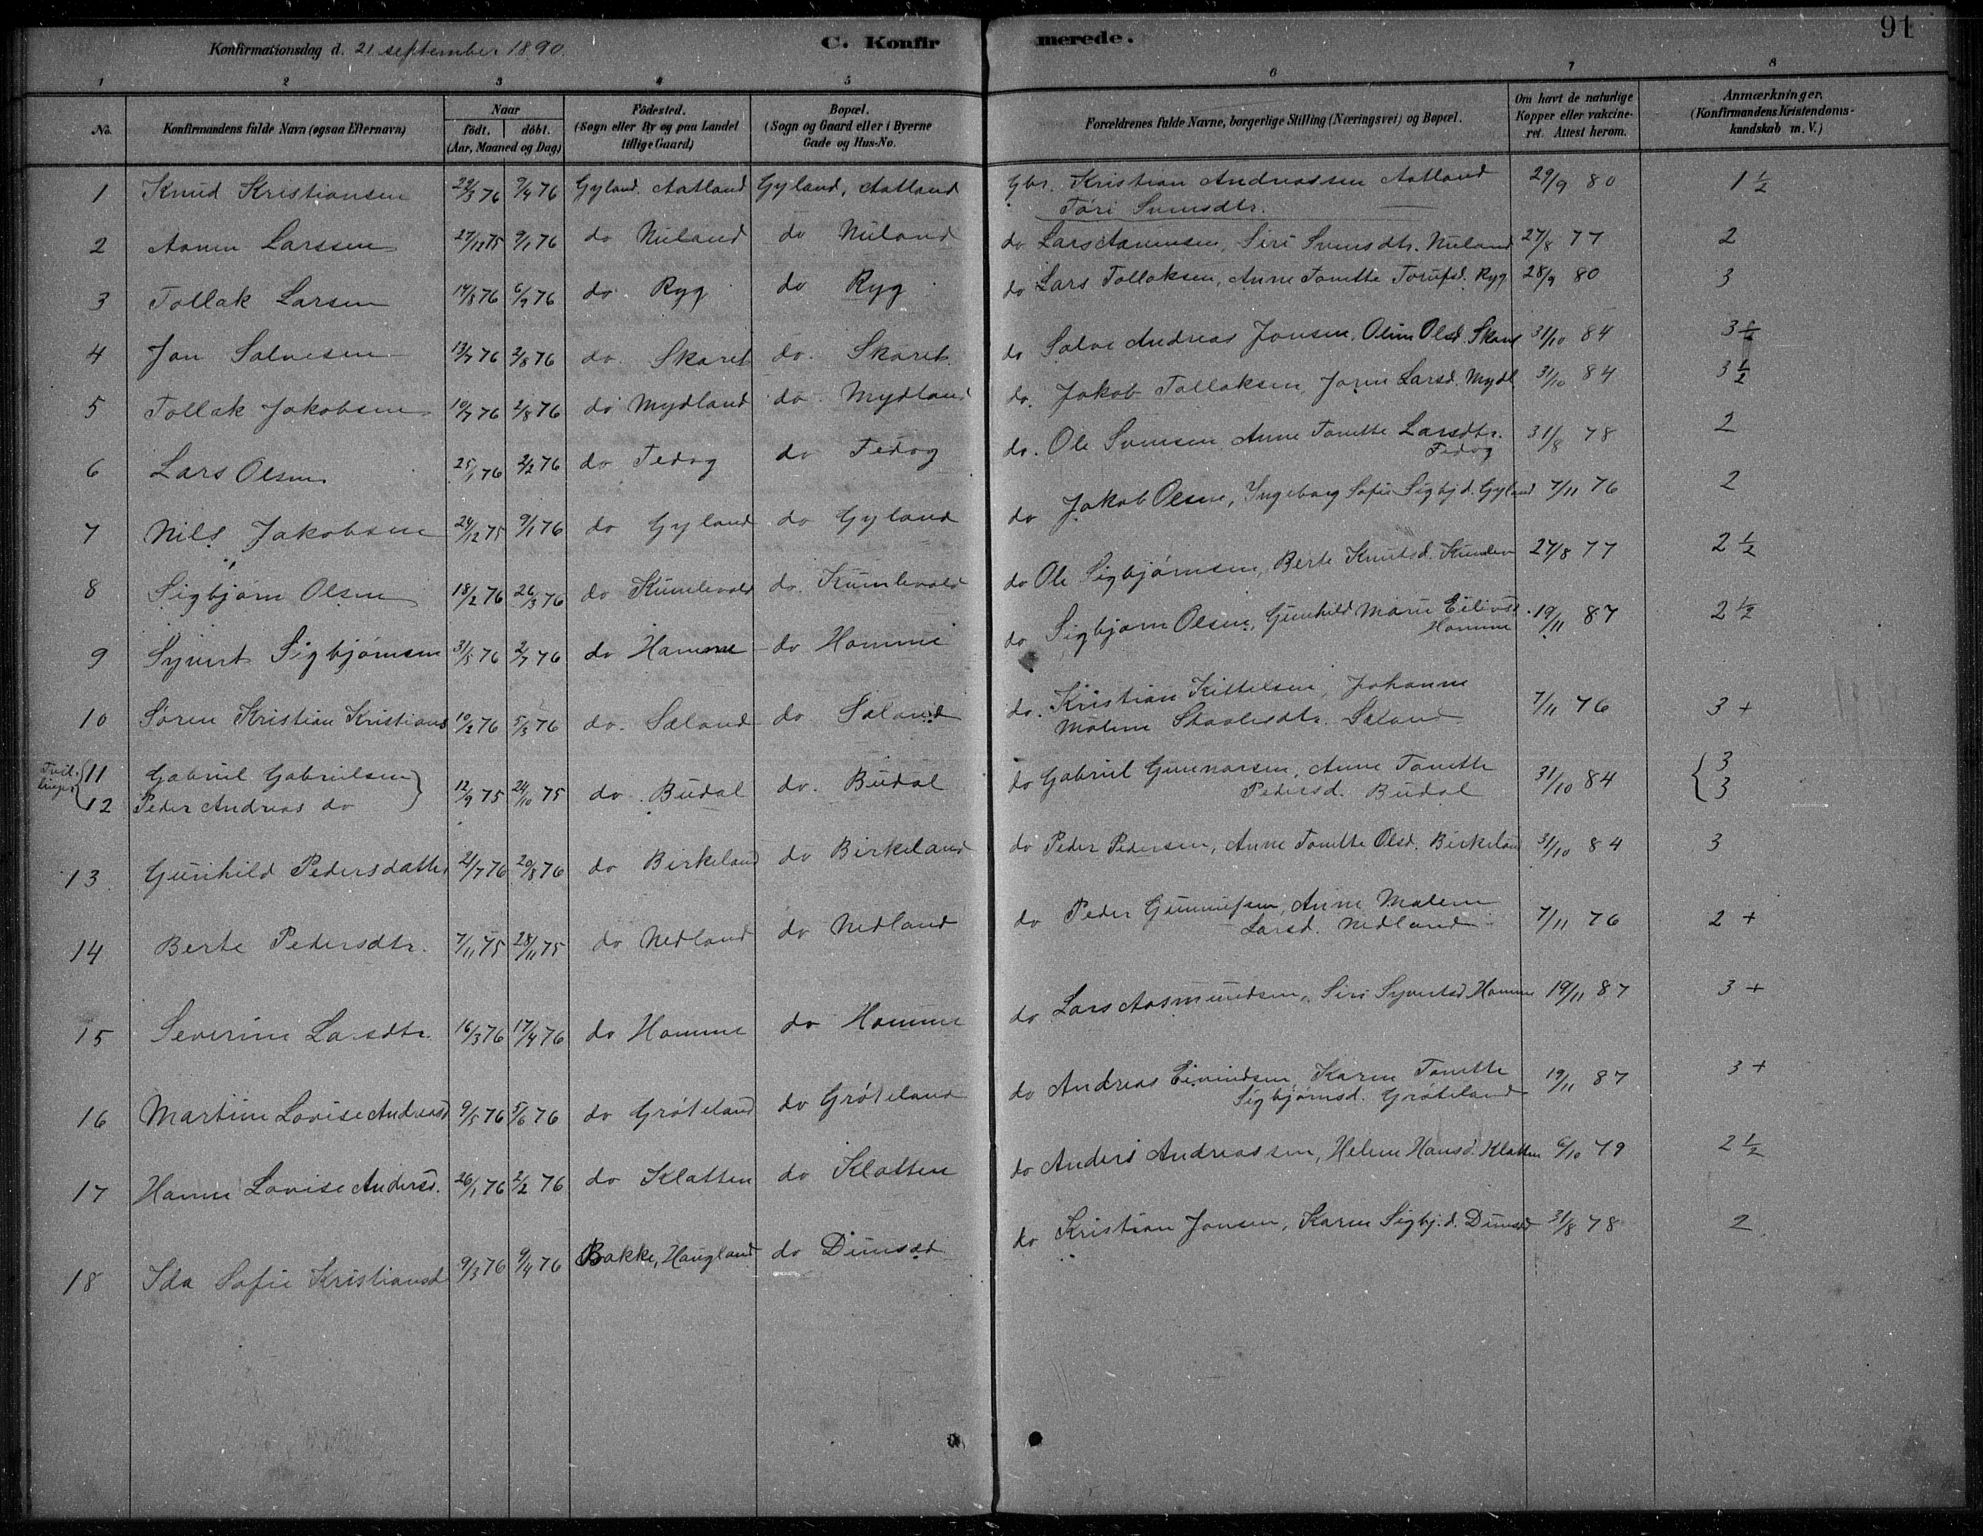 91
Konfirmationsdag d. 21 september 1890.
C. Konfirmerede.
1 2 3 4 5 6 7 8
No.
Konfirmandens fulde Navn (ogsaa Efternavn)
Naar
födt. döbt.
(Aar, Maaned og Dag)
Födested.
(Sogn eller By og paa Landet
tillige Gaard)
Bopæl.
(Sogn og Gaard eller i Byerne
Gade og Hus-No.
Forældrenes fulde Navne, borgerlige Stilling (Næringsvei) og Bopæl.
Om havt de naturlige
Kopper eller vakcine-
ret. Attest herom.
Anmærkninger.
(Konfirmandens Kristendoms-
kundskab m. V.)
1 Knud Kristiansen 9/4 76 Gyland. Aatland Gyland, Aatland Gbr. Kristian Andreassen Aatland 29/9 80 1 1/2
Tori Svensdtr.
2 Aanen Larssen 27/12 75 9/1 76 do Nuland do Nuland do Lars Aanensen, Siri Svensdtr. Nuland 27/8 77 2
3 Tollak Larsen 14/8 76 do Ryg do Ryg do Lars Tollaksen, Anne Tonette Ryg 28/9 80 3
4 Jon Salvesen 13/7 76 2/8 76 do. Skaret do. Skaret do Salve Andreas Jonsen, Olsd. 31/10 84 3 1/2
5 Tollak Jakobsen 10/7 76 2/8 76 do Mydland do. Mydland do. Jakob Tollaksen, Joren Larsd. Mydl 31/10 84 3 1/2
6 Lars Olsen 25/1 76 2/2 76 do Fedog do Fedog do. Ole Svensen Anne Tonette Larsdtr. 31/8 78 2
Fedog
7 Nils Jakobsen 24/12 75 9/1 76 do Gyland do Gyland do Jakob Olsen, Ingeborg Sofie Sigbj.d. Gyland 7/11 76 2
8 Sigbjørn Olsen 18/2 76 26/3 76 do Kumlevold do. Kumlevold do Ole Sigbjørnsen, Berte Knutsd. 27/8 77 2 1/2
9 Syvert Sigbjørnsen 31/5 76 2/7 76 do Homme do Homme do Sigbjørn Olsen, Gunhild Marie Eilivsd. 19/11 87 2 1/2
Homme
10 Søren Kristian Kristians 10/2 76 5/3 76 do. Sæland do Sæland do. Kristian Kittelsen, Johanne 7/11 76 3 +
Malene Staalesdtr. Sæland
Tvil-
linger
11 Gabriel Gabrielsen 12/9 75 24/10 75 do. Budal do. Budal do Gabriel Gunnarsen, Anne Tonette 31/10 84 3
12 Peder Andreas do Pedersd. Budal 3
13 Gunhild Pedersdatter 21/7 76 20/8 76 do Birkeland do Birkeland do Peder Pedersen, Anne Tonette Olsd. Birkeland 31/10 84 3
14 Berte Pedersdtr. 7/11 75 28/11 75 do Nedland do Nedland do Peder Gunnufsen, Anne Malene 7/11 76 2 +
Larsd. Nedland
15 Severine Larsdtr. 16/3 76 17/4 76 do Homme do Homme do Lars Aasmundsen, Siri Syvertsd Homme 19/11 87 3 +
16 Martine Lovise Andreasd 9/5 76 5/6 76 do Grøteland do Grøteland do Andreas Eivindsen, Karen Tonette 19/11 87 3 +
Sigbjørnsd. Grøteland
17 Hanne Lovise Andersd. 26/1 76 2/2 76 do Klatten do Klatten do Anders Andreassen, Helene Hansd. Klatten 6/10 79 2 1/2
18 Ida Sofie Kristiansd 9/3 76 9/4 76 Bakke, Haugland do Dunsæd do Kristian Jonsen, Karen Sigbj.d. Dunsæd 31/8 78 2